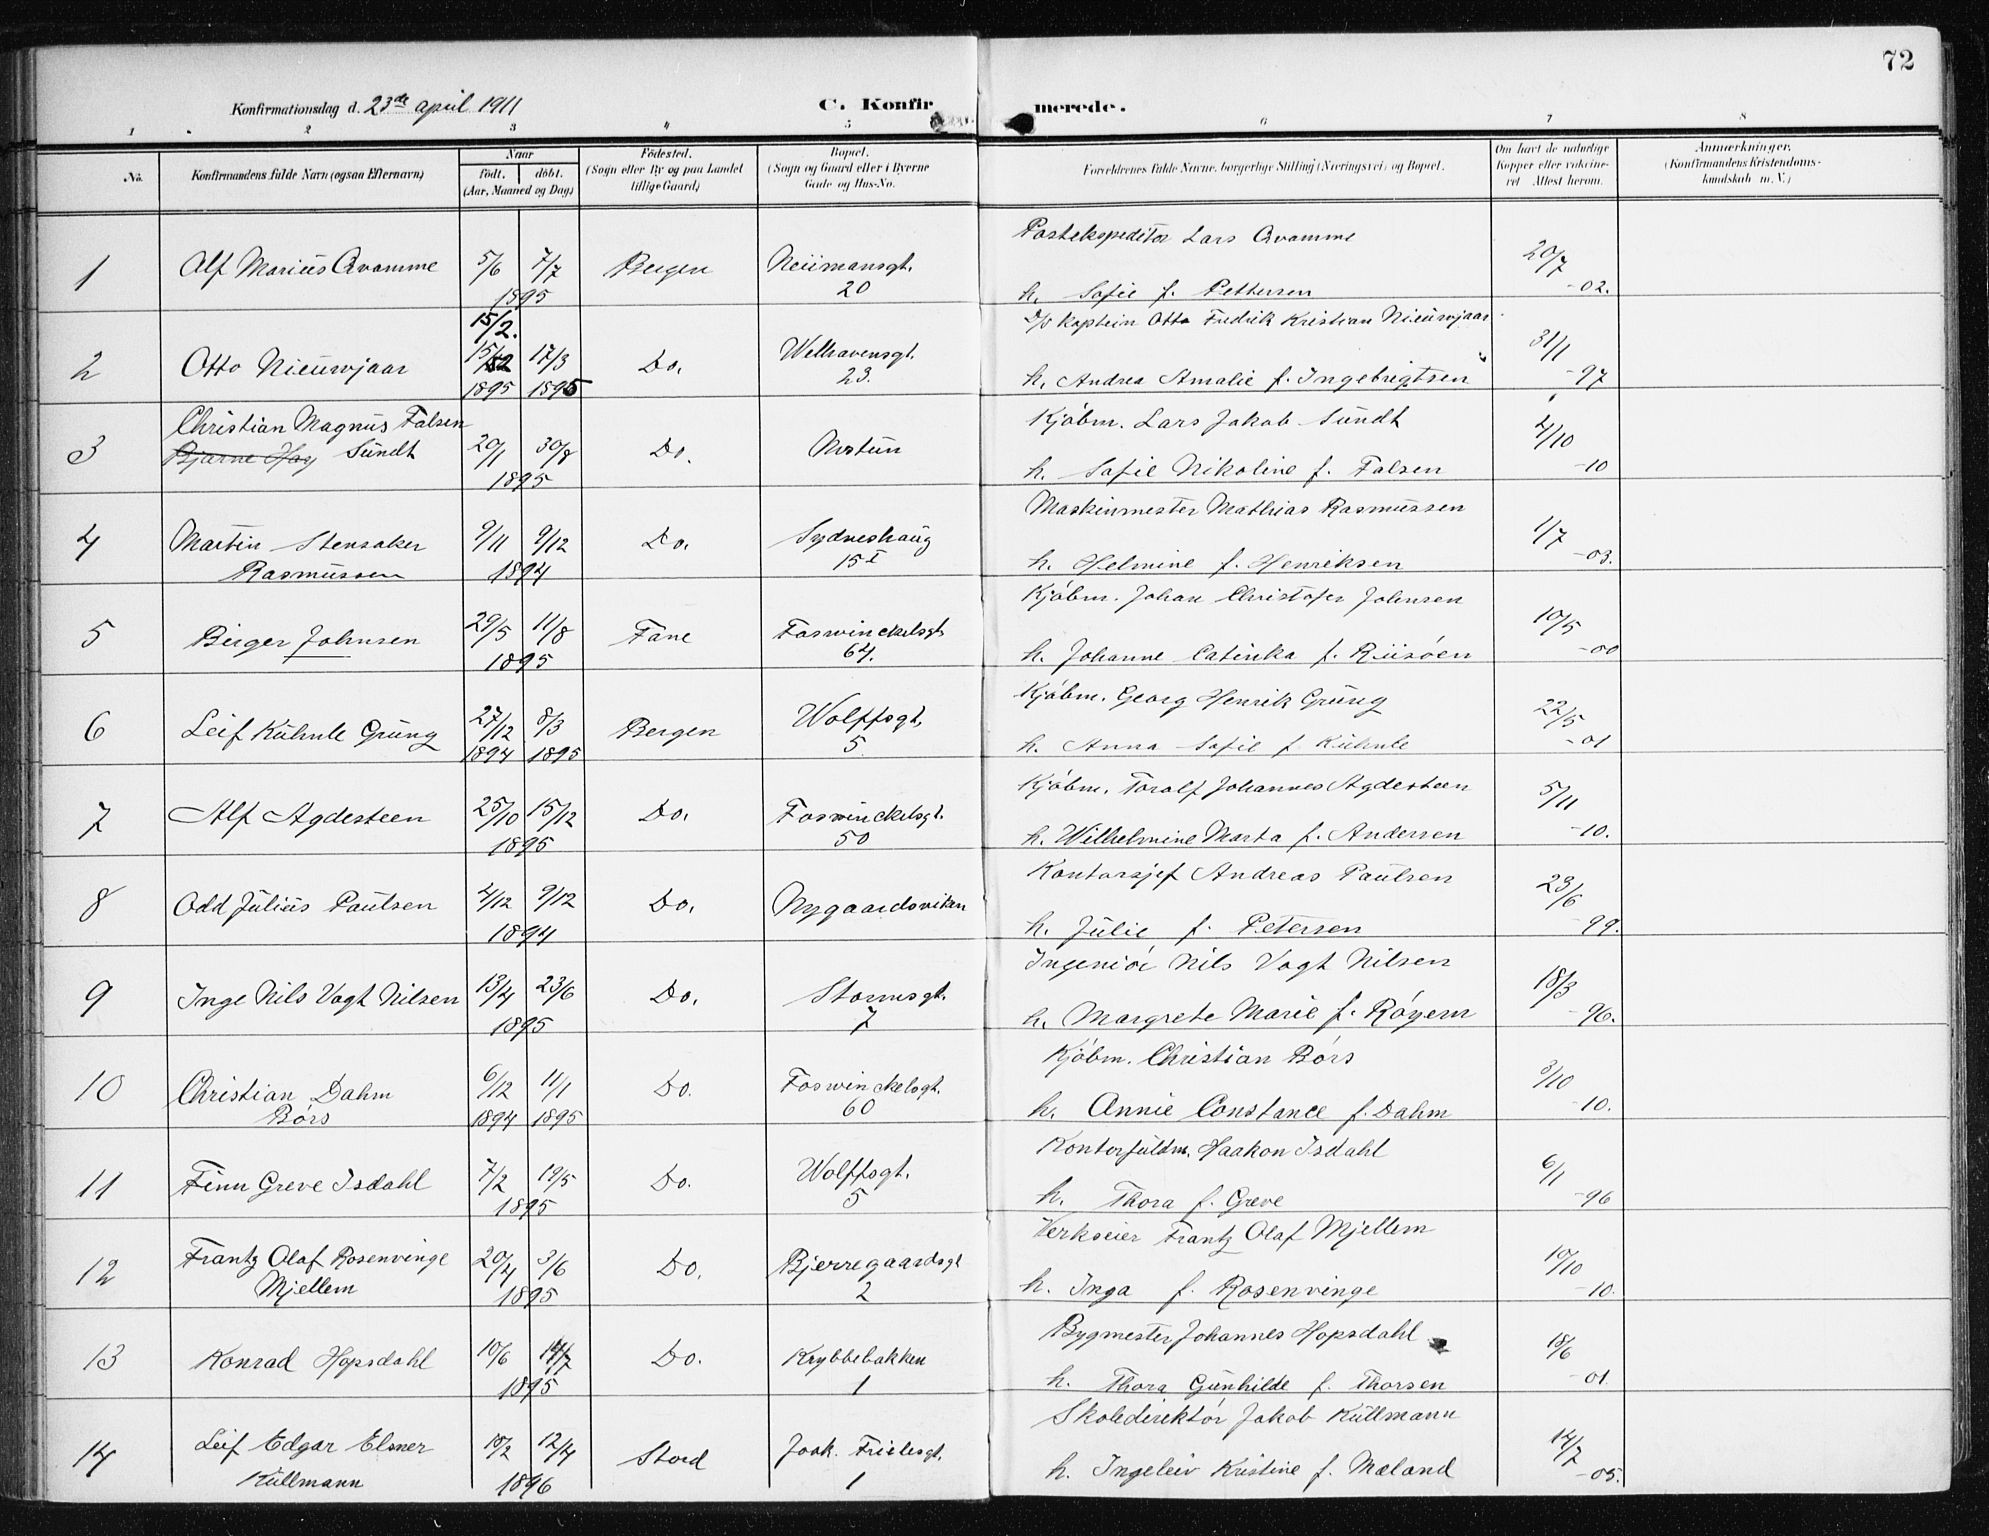 72
Konfirmationsdag d. 23de april 1911
C. Konfirmerede.
1 2 3 4 5 6 7 8
No.
Konfirmandens fulde Navn (ogsaa Efternavn)
Naar
født. døbt.
(Aar, Maaned og Dag)
Fødested.
(Sogn eller By og paa Landet
tillige Gaard)
Bopæl.
(Sogn og Gaard eller i Byerne
Gade og Hus-No.
Forældrenes fulde Navne, borgerlige Stilling (Næringsvei) og Bopæl.
Om havt de naturlige
Kopper eller vaccine-
ret Attest herom.
Anmærkninger.
(Konfirmandens Kristendoms-
kundskab m. V.)
1 Alf Marius Qvamme 5/6 7/7 1895 Bergen Neumansgt. 20
Postekspeditør Lars Qvamme
h. Sofie f. Pettersen 20/7 -02.
2 Otto Nieuwjaar 15/2. 15/12 1895 17/3 1895 Do. Welhavensgt. 23.
D/S kaptein Otto Fredrik Kristian Nieuwjaar
h. Andrea Amalie f. Ingebrigtsen 31/1 -97
3 Christian Magnus Falsen
Bjarne Hag Sundt 20/1 30/8 1895 Do. Natun
Kjøbm. Lars Jakob Sundt
h. Sofie Nikoline f. Falsen 4/10 -10
4 Martin Stensaker
Rasmussen 9/11 9/12 1894 Do. Sydneshaug 15 I
Maskinmester Mathias Rasmussen
h. Helmine f. Henriksen 1/7 -03.
5 Birger Johnsen 29/5 11/8 1895 Fane Foswinckelsgt 64.
Kjøbm. Johan Christofer Johnsen
h. Johanne Catinka f. Riisøen 10/5 -00
6 Leif Kuhnle Grung 27/12 1894 8/3 1895 Bergen Wolffsgt. 5
Kjøbm. Georg Henrik Grung
h. Anna Sofie f. Kuhnle 22/5 -01
7 Alf Agdesteen 25/10 15/12 1895 Do. Foswinckelsgt. 50
Kjøbm. Toralf Johannes Agdesteen
h. Wilhelmine Marta f. Andersen 5/11 -10.
8 Odd Julius Paulsen 4/12 9/12 1894 Do. Nygaardsviken
Kontorsjef Andreas Paulsen
h. Julie f. Petersen 23/6 -99.
9 Inge Nils Vogt Nilsen 13/4 23/6 1895 Do. Stormsgt. 7
Ingeniør Nils Vogt Nilsen
h. Margrete Marie f. Røyem 18/3 -96.
10 Christian Dahm
Børs 6/12 1894 11/1 1895 Do. Foswinckelsgt. 60
Kjøbm. Christian Børs
h. Annie Constance f. Dahm 3/10 -10.
11 Finn Greve Isdahl 7/2 19/5 1895 Do. Wolffsgt. 5
Kontorfuldm. Haakon Isdahl
h. Thora f. Greve 6/1 -96
12 Frantz Olaf Rosenvinge
Mjellem 20/4 3/6 1895 Do. Bjerregaardsgt 2
Verkseier Frantz Olaf Mjellem
h. Inga f. Rosenvinge 10/10 -10.
13 Konrad Hopsdahl 10/6 14/7 1895 Do. Krybbebakken 1
Bygmester Johannes Hopsdahl
h. Thora Gunhilde f. Thorsen 18/6 -01
14 Leif Edgar Elsner
Kullmann 10/2 12/4 1896 Stord Joak. Frielesgt. 1
Skoledirektør Jakob Kullmann
h. Ingeleiv Kristine f. Mæland 14/7 -05.